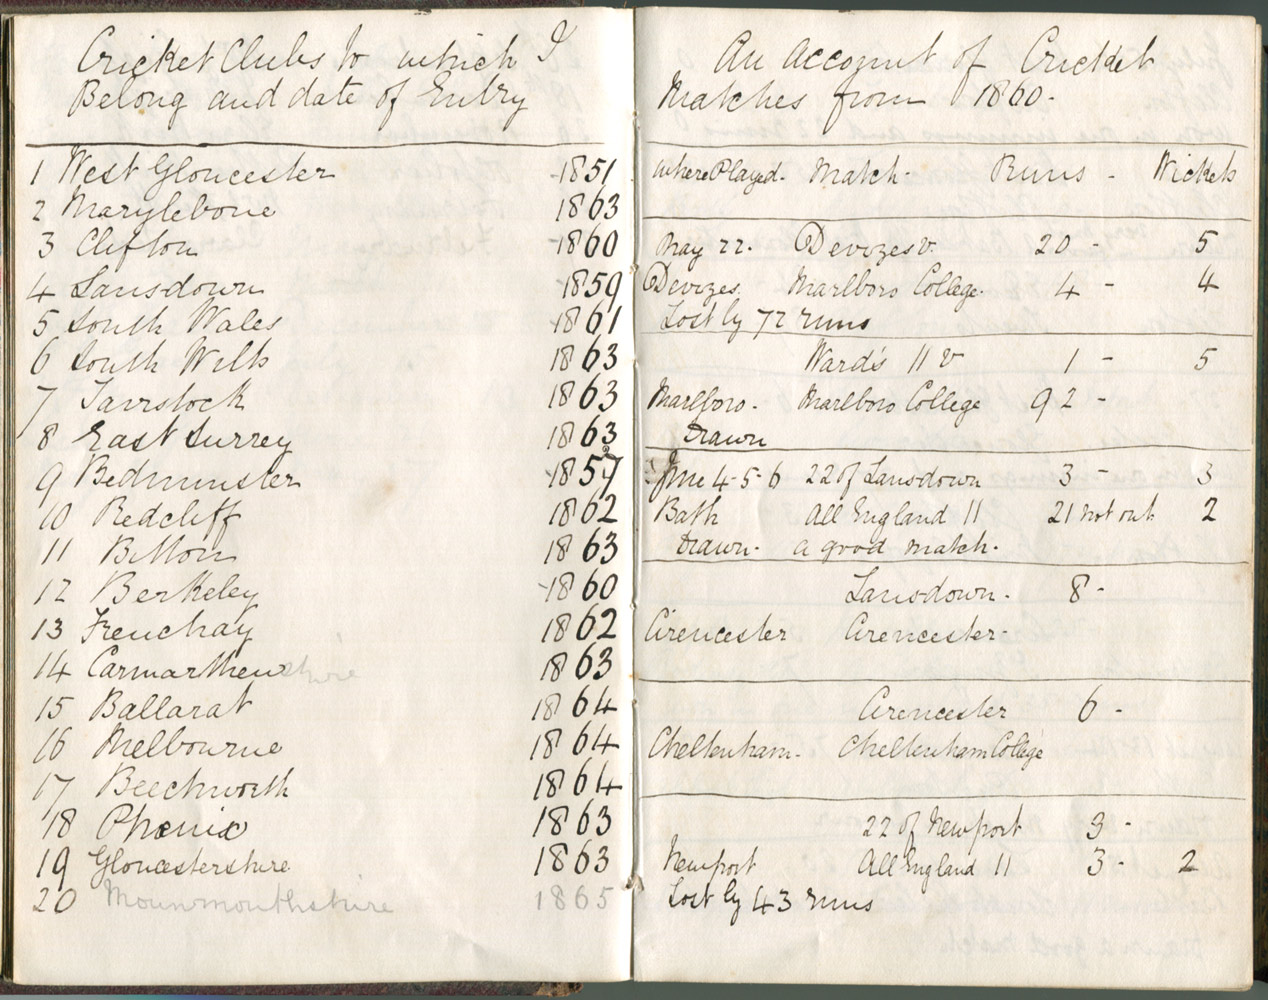 Cricket Clubs to which I
Belong and date of Entry
1 West Gloucester -1851
2 Marylebone 1863
3 Clifton -1860
4 Lansdown -1859
5 South Wales -1861
6 South Wilts 1863
7 Tavistock 1863
8 East Surrey 1863
9 Bedminster -1857
10 Redcliff 1862
11 Bitton 1863
12 Berkeley -1860
13 Frenchay 1862
14 Carmarthenshire 1863
15 Ballarat 1864
16 Melbourne 1864
17 Beechworth 1864
18 Phœnix 1863
19 Gloucestershire 1863
20 Mounmouthshire 1865
An account of Cricket
Matches from 1860.
where Played. Match. Runs - Wickets
May 22. Devizes v. 20 - 5
Devizes. Marlboro College. 4 - 4
Lost by 72 runs
Ward's 11 v 1 - 5
Marlboro. Marlboro College 92 -
Drawn
June 4-5-6 22 of Lansdown 3 - 3
Bath All England 11 21 not out 2
Drawn. a good match.
Lansdown. 8 -
Cirencester Cirencester.
Cirencester 6 -
Cheltenham. Cheltenham College
22 of Newport 3 -
Newport All England 11 3 - 2
Lost by 43 runs